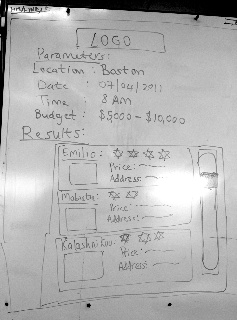 LOGO
Parameters:
Location : Boston
Date : 07/04/2011
Time : 8 AM
Budget : $5,000 - $10,000
Results:
Emilio:
Price:
Address:
Price:
Address:
Kalashnikov:
Price:
Address: